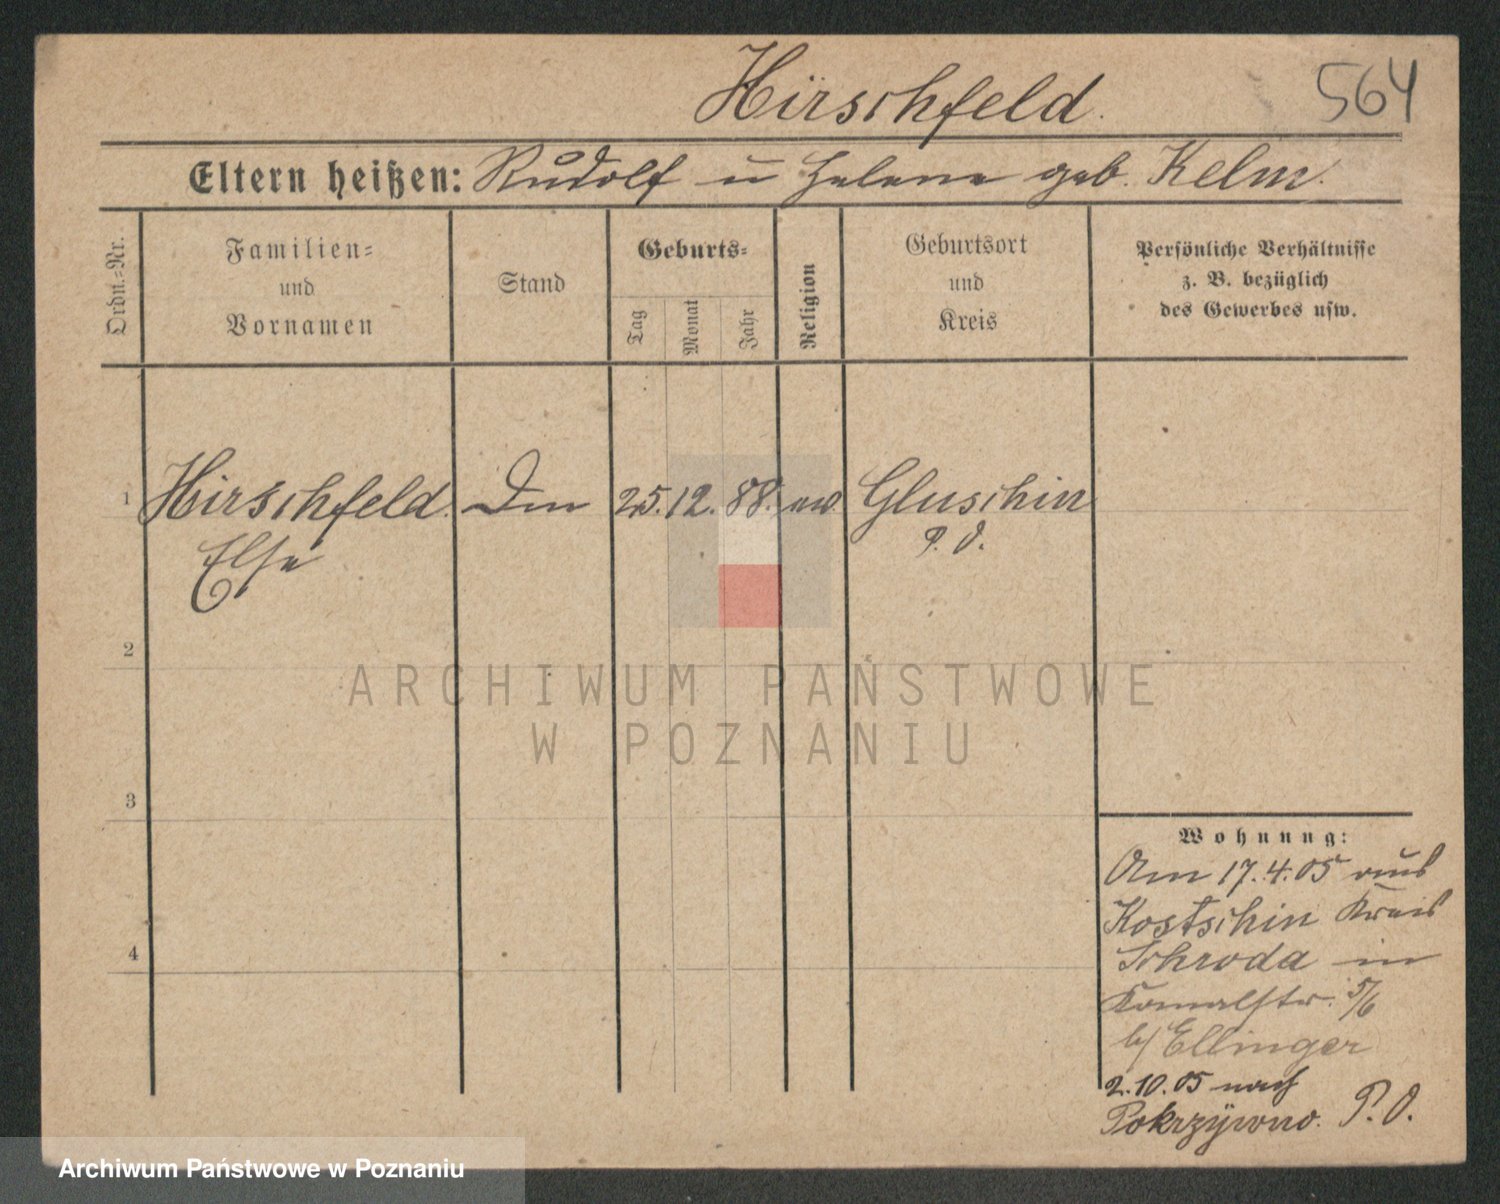 Hirschfeld.
564
Eltern heißen: Rudolf u Helene geb. Kelm.
Ordn.=Nr.
Familien=
und
Vornamen
Stand
Geburts=
Tag
Monat
Jahr
Religion
Geburtsort
und
Kreis
Persönliche Verhältnisse
z. B. bezüglich
des Gewerbes usw.
1 Hirschfeld. 25. 12. 88. ev. Gluschin
Else P. O.
2
3
4
Wohnung:
Am 17.4.05 aus
Kostschin Kreis
Schroda in
Kanalstr. 5/6
b/ Ellinger
2.10.05 nach
Pokrzywno. P. O.
ARCHIWUM PAŃSTWOWE
W POZNANIU
Archiwum Państwowe w Poznaniu